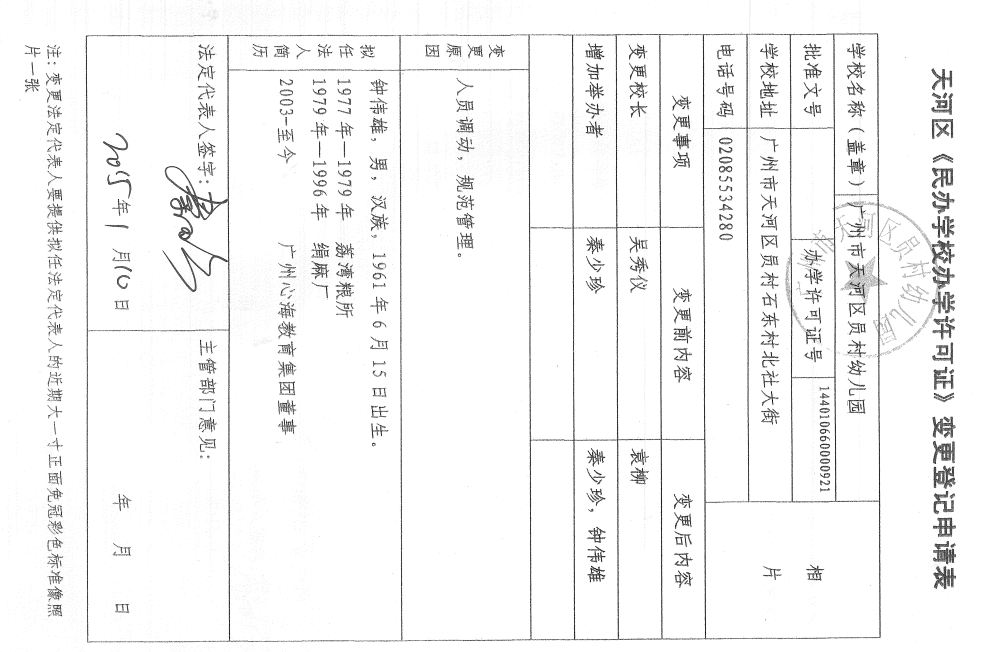 天河区《民办学校办学许可证》变更登记申请表
学校名称（盖章） 广州市天河区员村幼儿园
批准文号 办学许可证号 144010660000921
学校地址 广州市天河区员村石东村北社大街
电话号码 02085534280
相片
变更事项 变更前内容 变更后内容
变更校长 吴秀仪 袁柳
增加举办者 秦少珍 秦少珍，钟伟雄
变更原因
人员调动，规范管理。
拟任法人简历
钟伟雄，男，汉族，1961年6月15日出生。
1977年—1979年 荔湾粮所
1979年—1996年 绢麻厂
2003-至今 广州心海教育集团董事
法定代表人签字：
2015年1月10日
主管部门意见：
年 月 日
注：变更法定代表人要提供拟任法定代表人的近期大一寸正面免冠彩色标准像照
片一张